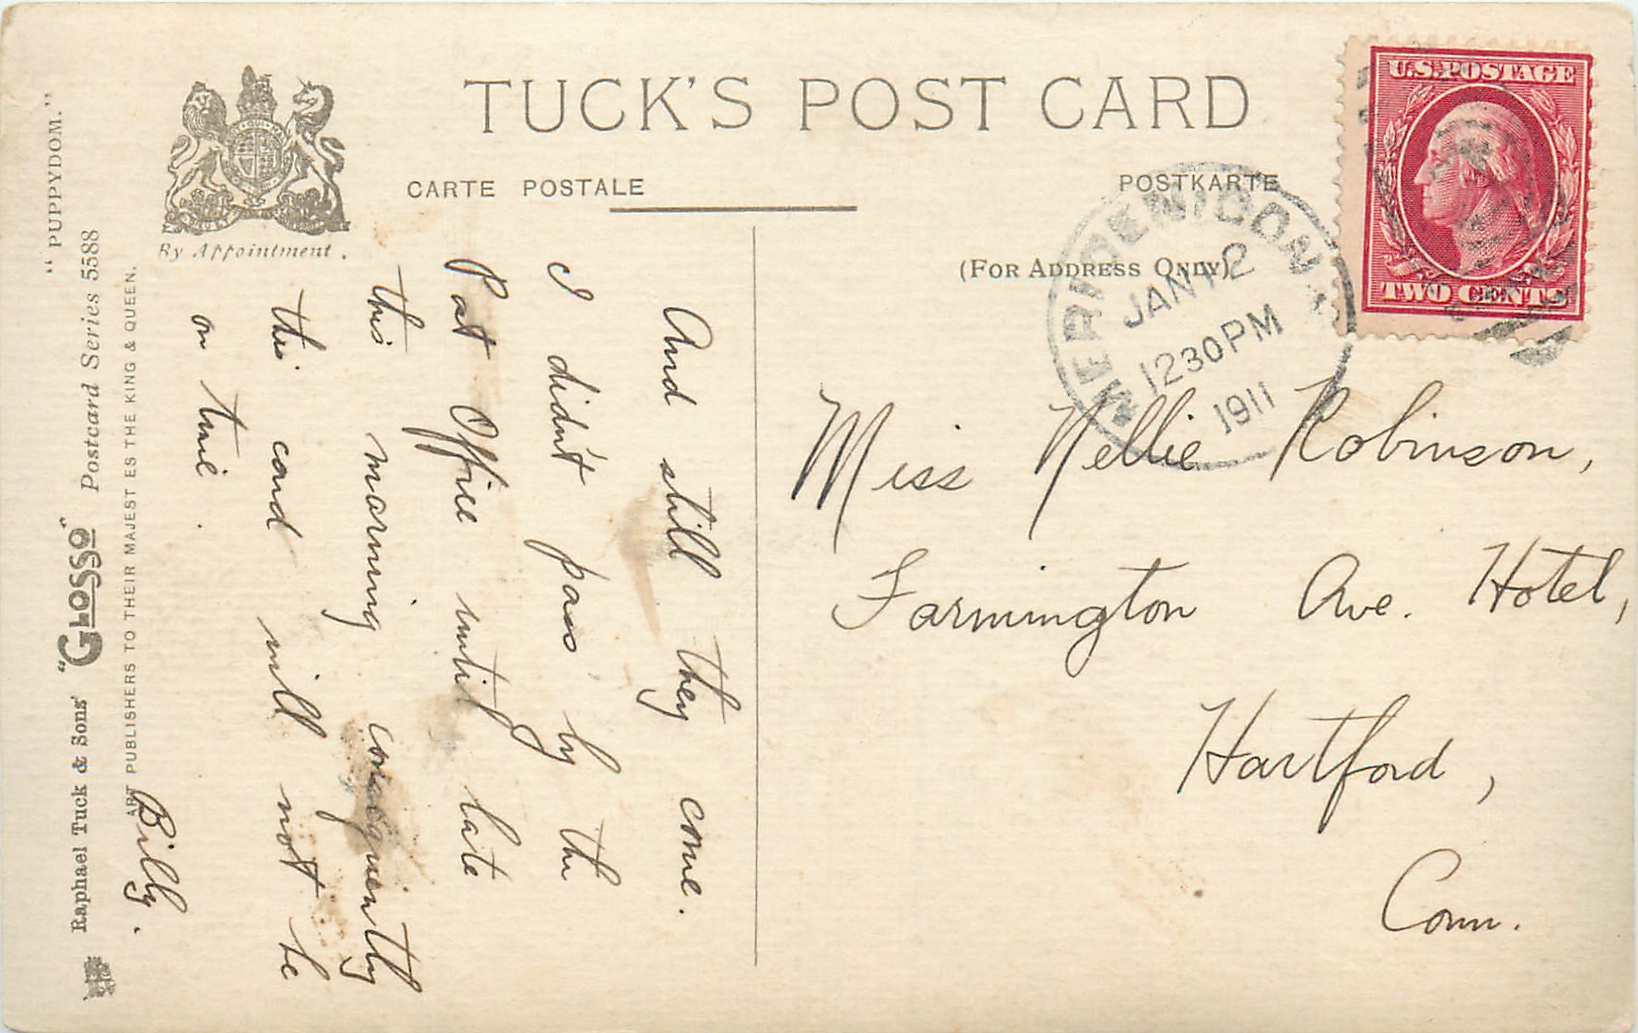 TUCK'S POST CARD
CARTE POSTALE
POSTKARTE
(FOR ADDRESS ONLY)
By Appointment.
"PUPPYDOM."
Raphael Tuck & Sons' "GLOSSO" Postcard Series 5588
ART PUBLISHERS TO THEIR MAJESTIES THE KING & QUEEN.
U.S. POSTAGE
TWO CENTS
MERIDEN CONN
JAN 12
1230PM
1911
And still they come.
I didn't pass by the
Post Office until late
this morning consequently
this card will not be
on time.
Billy.
Miss Nellie Robinson,
Farmington Ave. Hotel,
Hartford,
Conn.